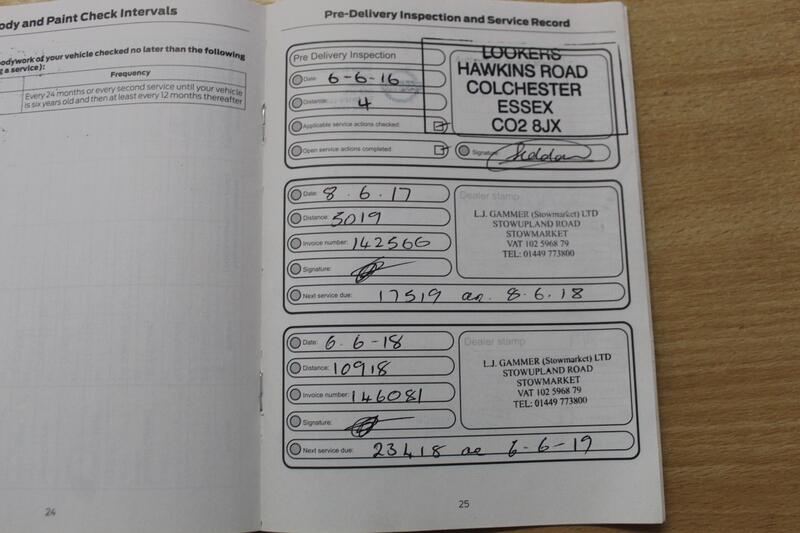 ody and Paint Check Intervals
bodywork of your vehicle checked no later than the following
g a service):
Frequency
Every 24 months or every second service until your vehicle
is six years old and then at least every 12 months thereafter
24
Pre-Delivery Inspection and Service Record
Pre Delivery Inspection
Date: 6-6-16
Distance: 4
Applicable service actions checked:
Open service actions completed:
LOOKERS
HAWKINS ROAD
COLCHESTER
ESSEX
CO2 8JX
Signature
Date: 8.6.17
Distance: 5019
Invoice number: 142566
Signature:
Next service due: 17519 or 8.6.18
Dealer stamp
L.J. GAMMER (Stowmarket) LTD
STOWUPLAND ROAD
STOWMARKET
VAT 102 5968 79
TEL: 01449 773800
Date: 6.6-18
Distance: 10918
Invoice number: 146081
Signature:
Next service due: 23418 or 6-6-19
Dealer stamp
L.J. GAMMER (Stowmarket) LTD
STOWUPLAND ROAD
STOWMARKET
VAT 102 5968 79
TEL: 01449 773800
25